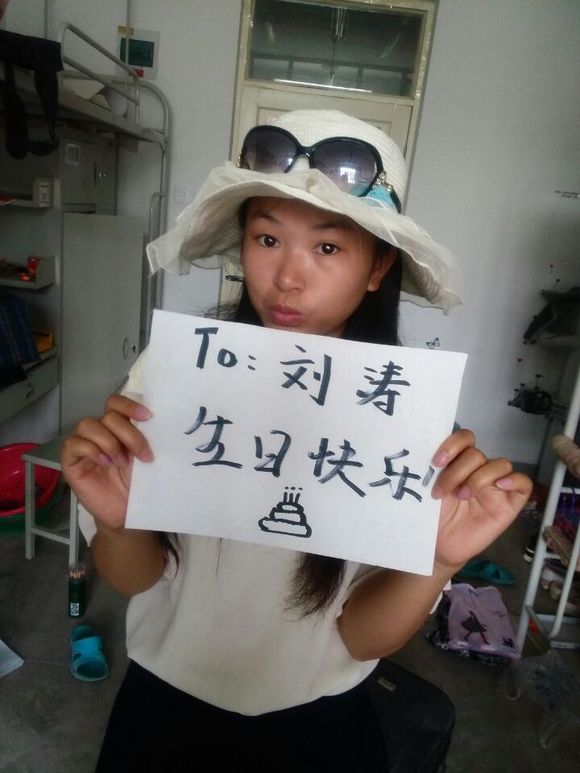 To: 刘涛
生日快乐